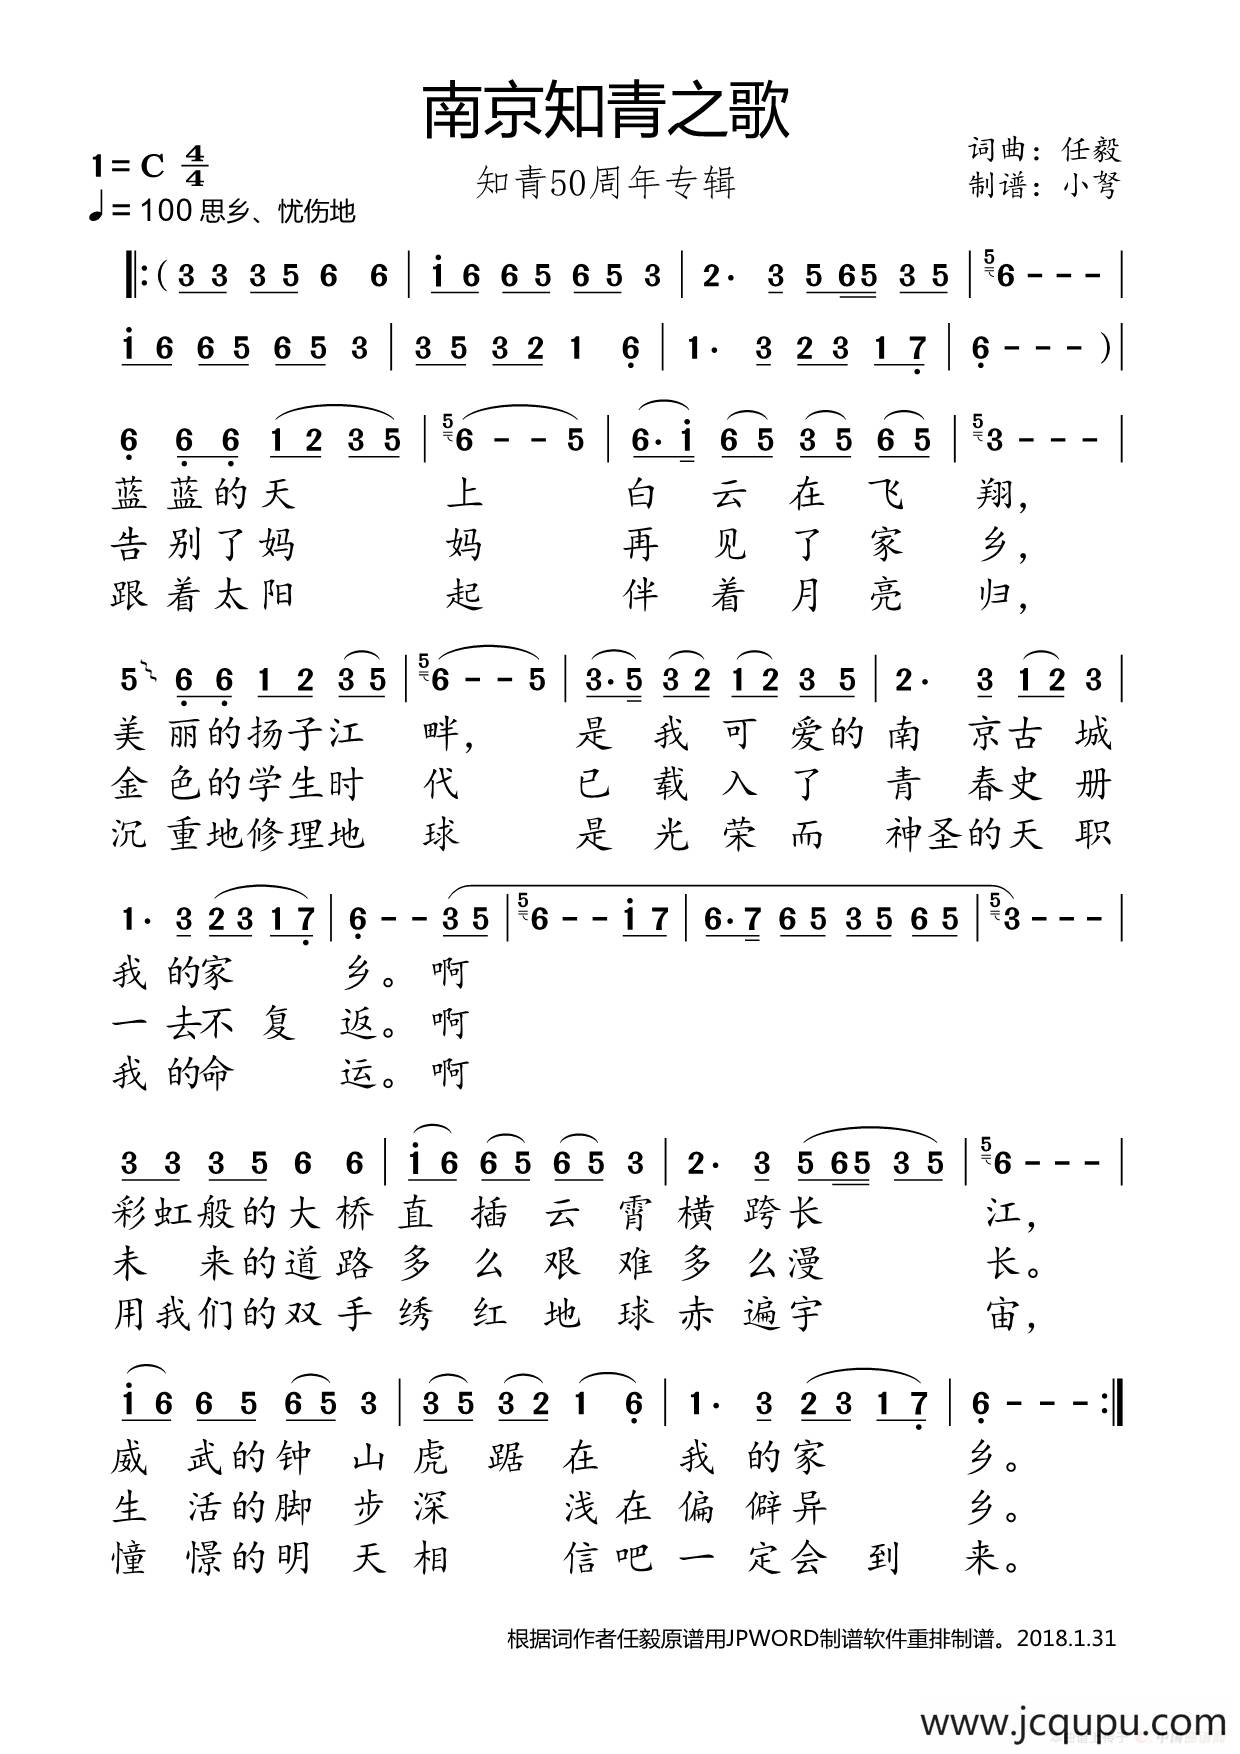 南京知青之歌
1=C 4/4
知青50周年专辑
词曲：任毅
制谱：小弩
♩=100 思乡、忧伤地
‖:(3 3 3 5 6 6 | i 6 6 5 6 5 3 | 2. 3 5 65 3 5 | 5 6 - - - |
i 6 6 5 6 5 3 | 3 5 3 2 1 6 | 1. 3 2 3 1 7 | 6 - - - )|
6 6 6 1 2 3 5 | 5 6 - - 5 | 6. i 6 5 3 5 6 5 | 5 3 - - - |
蓝蓝的天 上 白云在飞翔，
告别了妈 妈 再见了家乡，
跟着太阳 起 伴着月亮归，
5 6 6 1 2 3 5 | 5 6 - - 5 | 3. 5 3 2 1 2 3 5 | 2. 3 1 2 3 |
美丽的扬子江 畔， 是我可爱的南京古城
金色的学生时 代 已载入了青春史册
沉重地修理地 球 是光荣而神圣的天职
1. 3 2 3 1 7 | 6 - - 3 5 | 5 6 - - i 7 | 6. 7 6 5 3 5 6 5 | 5 3 - - - |
我的家 乡。啊
一去不复返。啊
我的命 运。啊
3 3 3 5 6 6 | i 6 6 5 6 5 3 | 2. 3 5 65 3 5 | 5 6 - - - |
彩虹般的大桥直插云霄横跨长 江，
未来的道路多么艰难多么漫 长。
用我们的双手绣红地球赤遍宇 宙，
i 6 6 5 6 5 3 | 3 5 3 2 1 6 | 1. 3 2 3 1 7 | 6 - - - :‖
威武的钟山虎踞在 我的家 乡。
生活的脚步深 浅在偏僻异 乡。
憧憬的明天相 信吧一定会到来。
根据词作者任毅原谱用JPWORD制谱软件重排制谱。2018.1.31
www.jcqupu.com